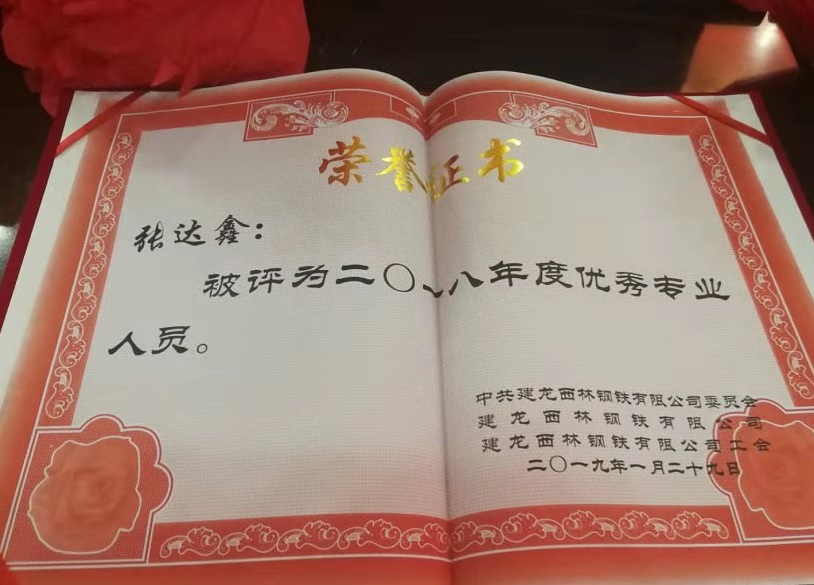 荣誉证书
张达鑫：
被评为二〇一八年度优秀专业
人员。
中共建龙西林钢铁有限公司委员会
建龙西林钢铁有限公司
建龙西林钢铁有限公司工会
二〇一九年一月二十九日